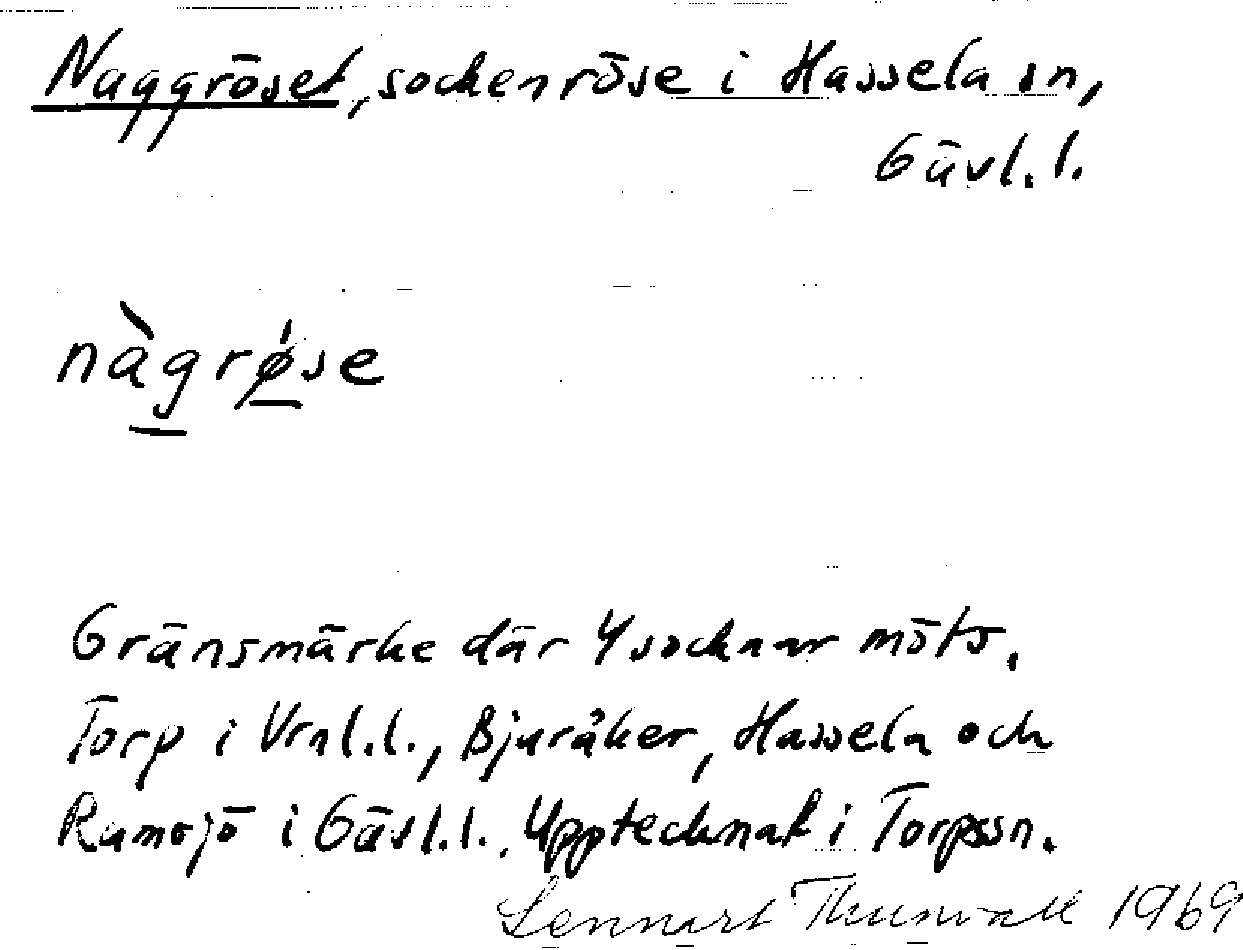 Naggröset, sockenröse i Hassela sn,
Gävl. l.
nàgrǿse
Gränsmärke där 4 socknar möts.
Torp i Vrnl. l., Bjuråker, Hassela och
Ramsjö i Gävl. l. Upptecknat i Torpssn.
Lennart Thunvall 1969